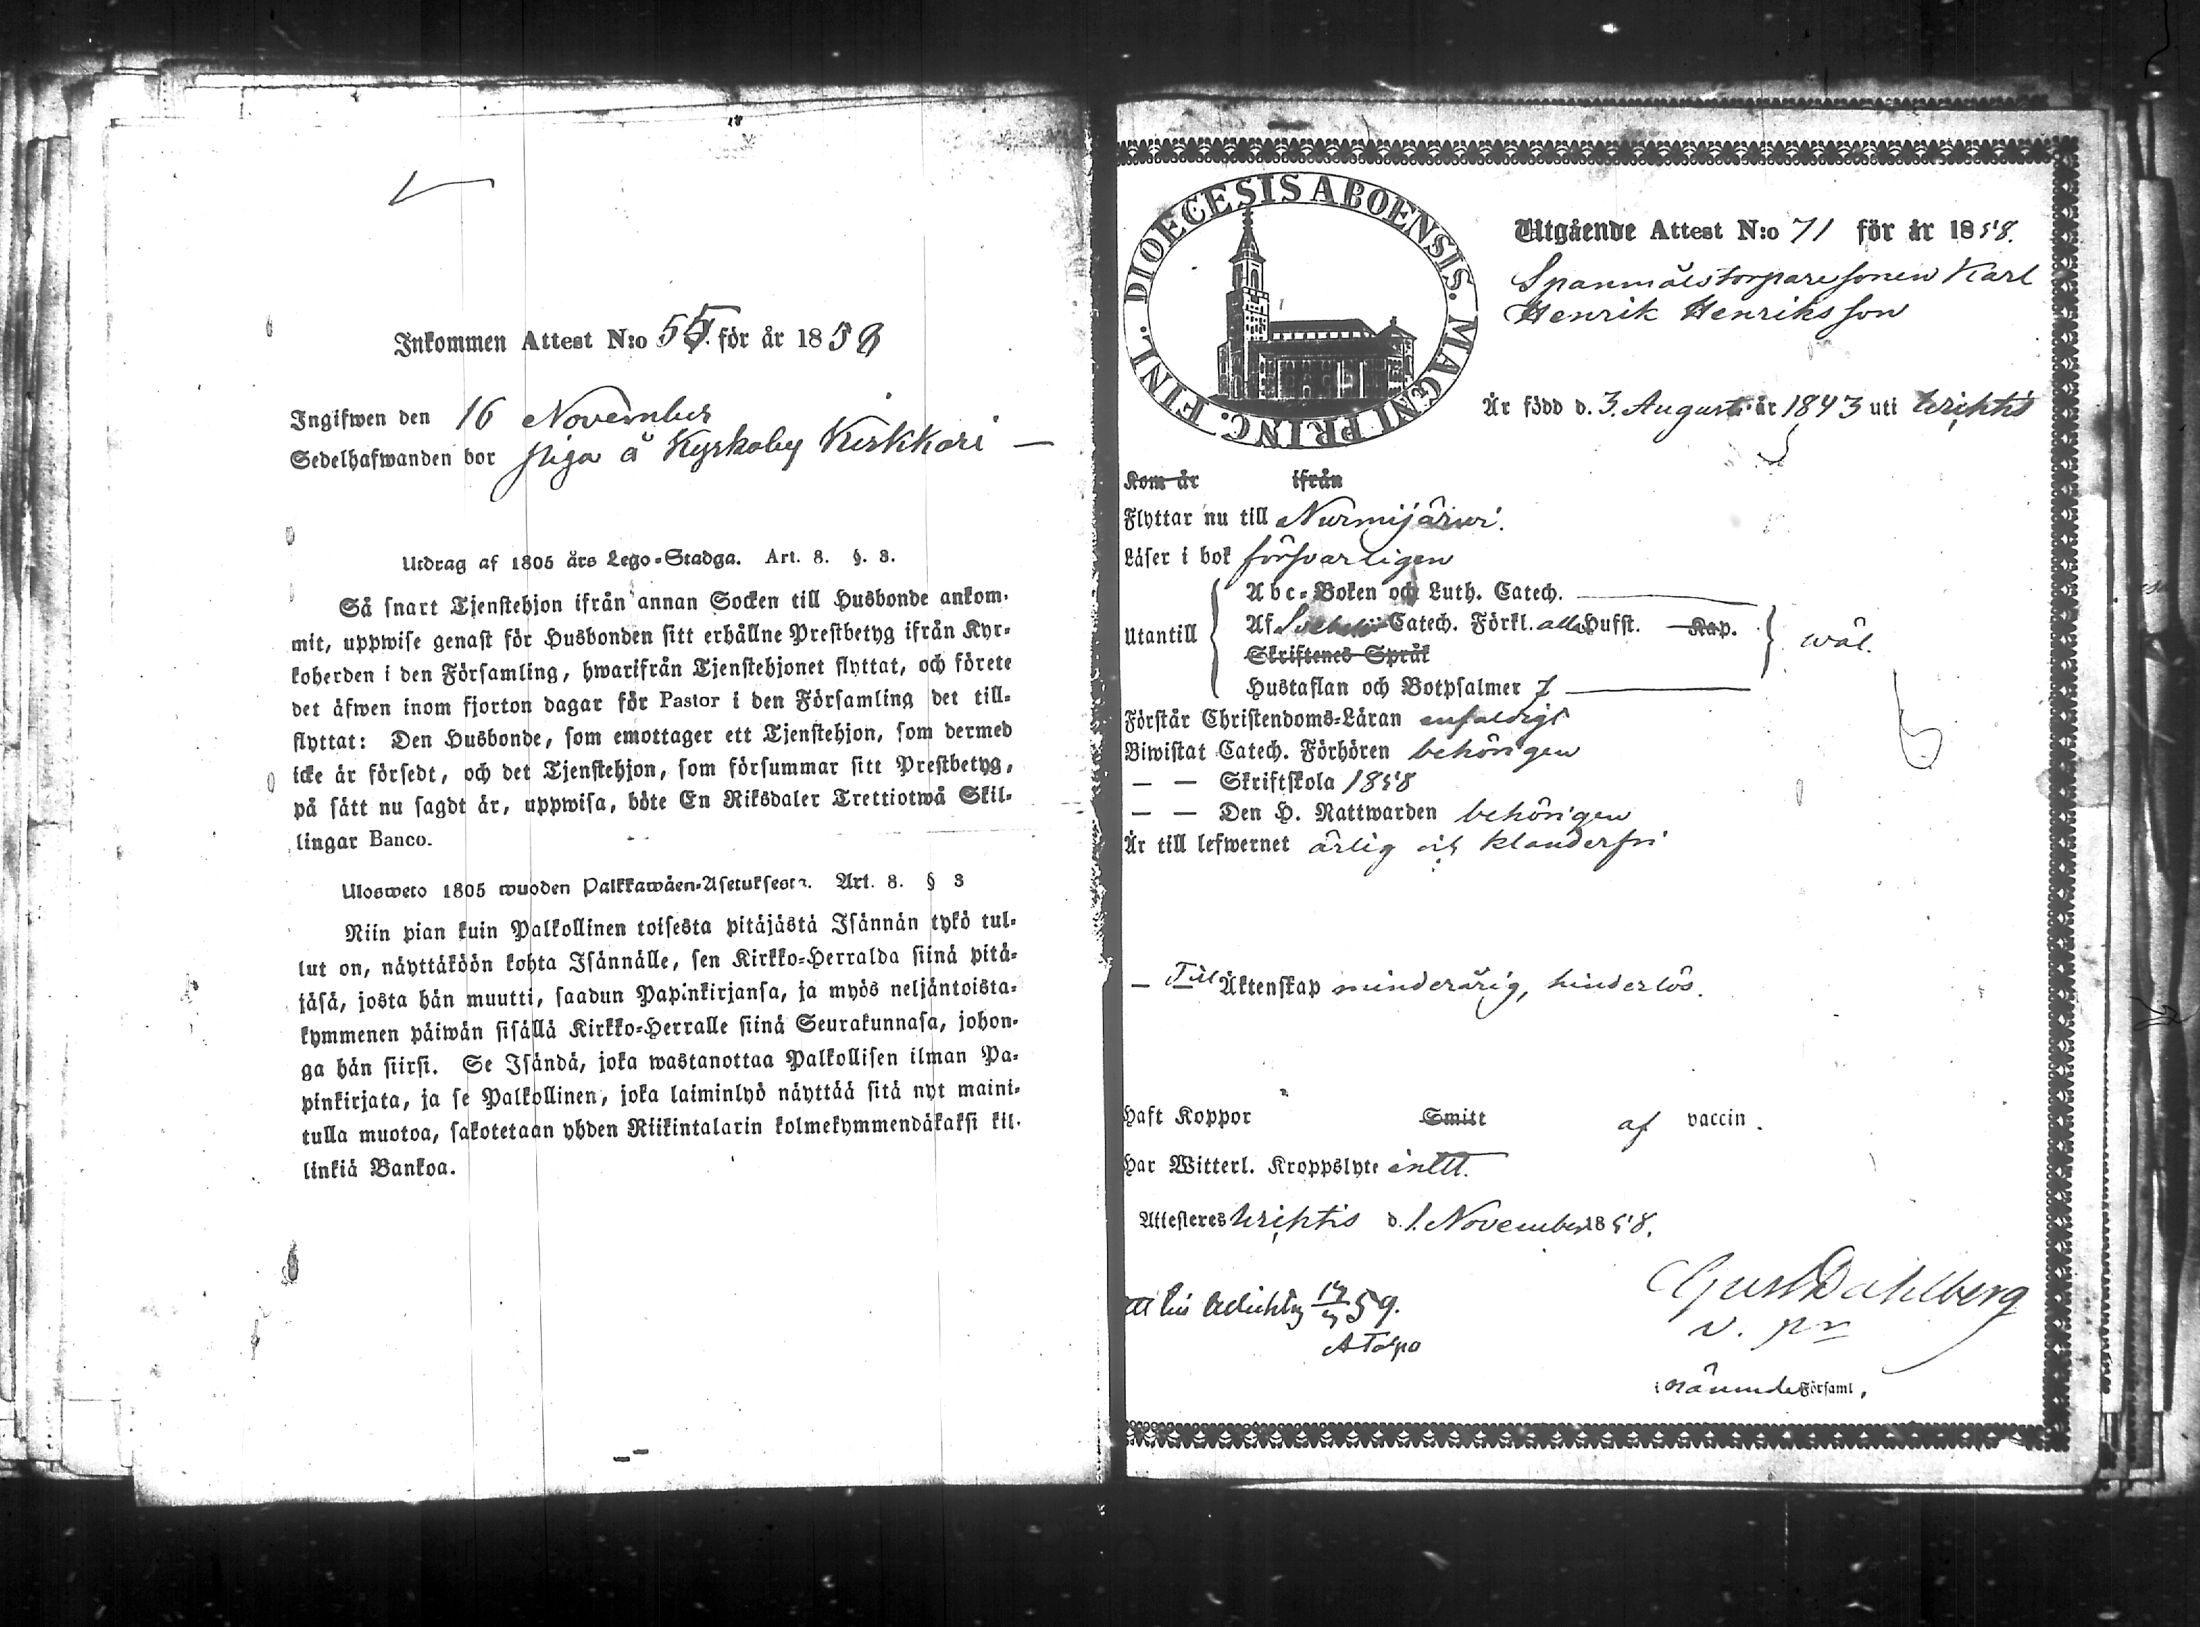 Inkommen Attest N:o 55 för år 1858
Ingifwen den 16 November
Sedelhafwanden bor piga å Kyrkoby Kirkkari —
Utdrag af 1805 års Lego-Stadga. Art. 8. §. 3.
Så snart Tjenstehjon ifrån annan Socken till Husbonde ankom-
mit, uppwise genast för Husbonden sitt erhållne Prestbetyg ifrån Kyr-
koherden i den Församling, hwarifrån Tjenstehjonet flyttat, och förete
det äfwen inom fjorton dagar för Pastor i den Församling det till-
flyttat: Den Husbonde, som emottager ett Tjenstehjon, som dermed
icke är försedt, och det Tjenstehjon, som försummar sitt Prestbetyg,
på sätt nu sagdt är, uppwisa, böte En Riksdaler Trettiotwå Skil-
lingar Banco.
Ulosweto 1805 wuoden Palkkawäen-Asetuksesta. Art. 8. § 3
Niin pian kuin Palkollinen toisesta pitäjästä Isännän tykö tul-
lut on, näyttäköön kohta Isännälle, sen Kirkko-Herralda siinä pitä-
jäsä, josta hän muutti, saadun Papinkirjansa, ja myös neljäntoista-
kymmenen päiwän sisällä Kirkko-Herralle siinä Seurakunnasa, johon-
ga hän siirsi. Se Isändä, joka wastanottaa Palkollisen ilman Pa-
pinkirjata, ja se Palkollinen, joka laiminlyö näyttää sitä nyt maini-
tulla muotoa, sakotetaan yhden Riikintalarin kolmekymmendäkaksi kil-
linkiä Bankoa.
DIOECESIS ABOENSIS. MAGNI PRINC. FINL.
Utgående Attest N:o 71 för år 1858.
Spanmålstorparesonen Karl
Henrik Henriksson
Är född d. 3. Augusti år 1843 uti Wichtis
Kom år ifrån
Flyttar nu till Nurmijärwi.
Läser i bok försvarligen
Abc-Boken och Luth. Catech.
Utantill
Af Catech. Förkl. alla Hufst. Kap.
wäl.
Skriftenes Språk
Hustaflan och Botpsalmer 7
Förstår Christendoms-Läran enfaldigt
Biwistat Catech. Förhören behörigen
— — Skriftskola 1858
— — Den H. Nattwarden behörigen
Är till lefwernet ärlig och klanderfri
— Till Äktenskap minderårig, hinderlös.
Haft Koppor Smitt af vaccin.
Har Witterl. Kroppslyte intet.
Attesteras Wichtis d. 1. November 1858.
Gust Dahlberg
59.
v. pr
i nämnde Församl.